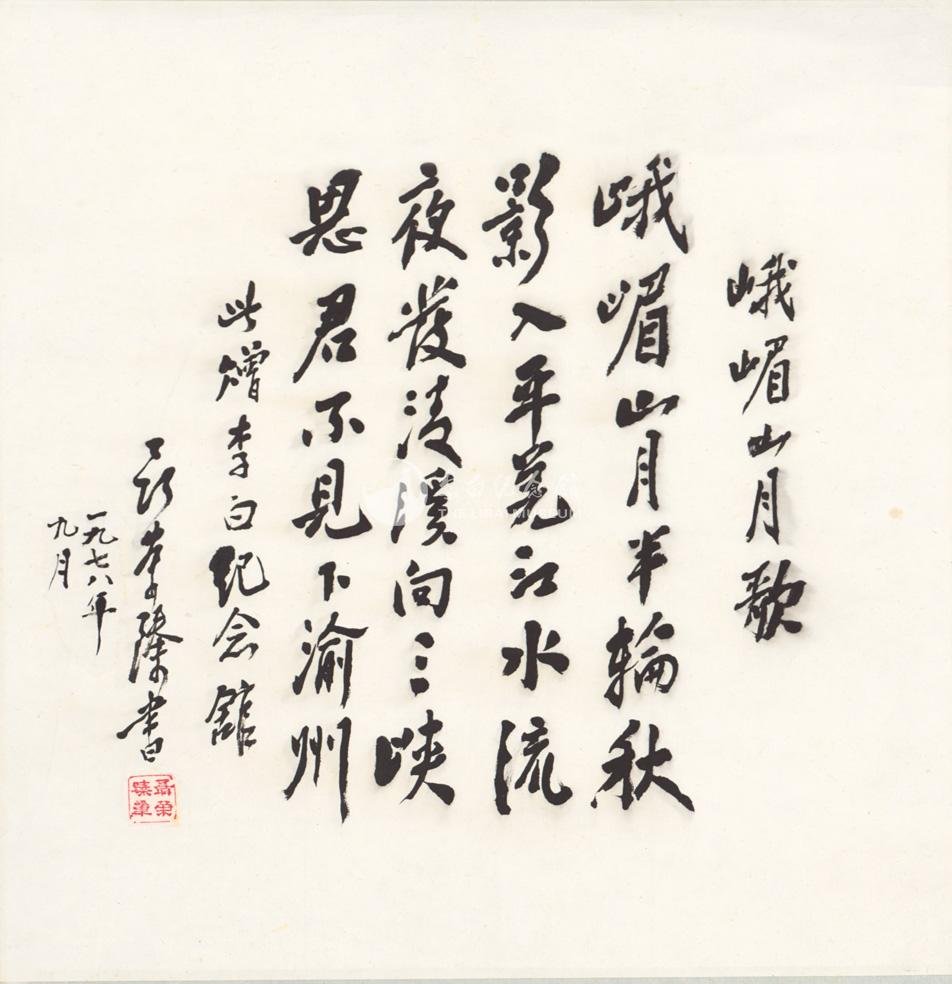 峨嵋山月歌
峨嵋山月半輪秋
影入平羌江水流
夜發清溪向三峡
思君不見下渝州
此贈李白纪念館
聂荣臻書
一九七八年
九月
聶榮臻章
李白纪念馆
THE LIBAI MUSEUM